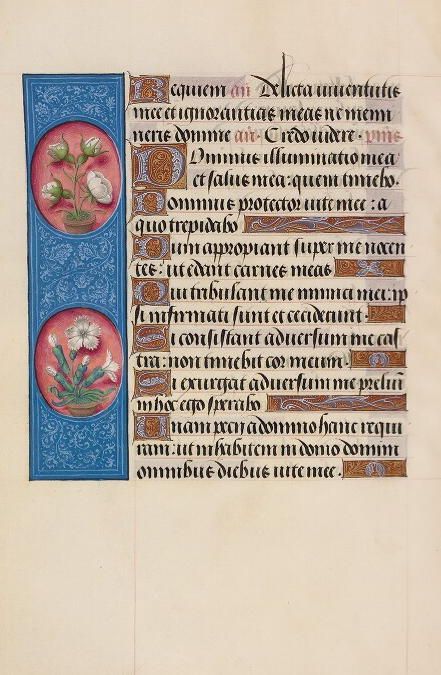 Requiem an̄ Delicta iuventutis
mee et ignorantias meas ne memi
neris domine an̄· Credo videre· p̄m̄s
Dominus illuminatio mea
et salus mea: quem timebo·
Dominus protector vite mee: a
quo trepidabo
Dum appropiant super me nocen
tes: ut edant carnes meas
Qui tribulant me inimici mei: ip
si infirmati sunt et ceciderunt·
Si consistant adversum me cas
tra: non timebit cor meum·
Si exurgat adversum me preliū
in hoc ego sperabo
Unam pecii a domino hanc requi
ram: ut inhabitem in domo domini
omnibus diebus vite mee·